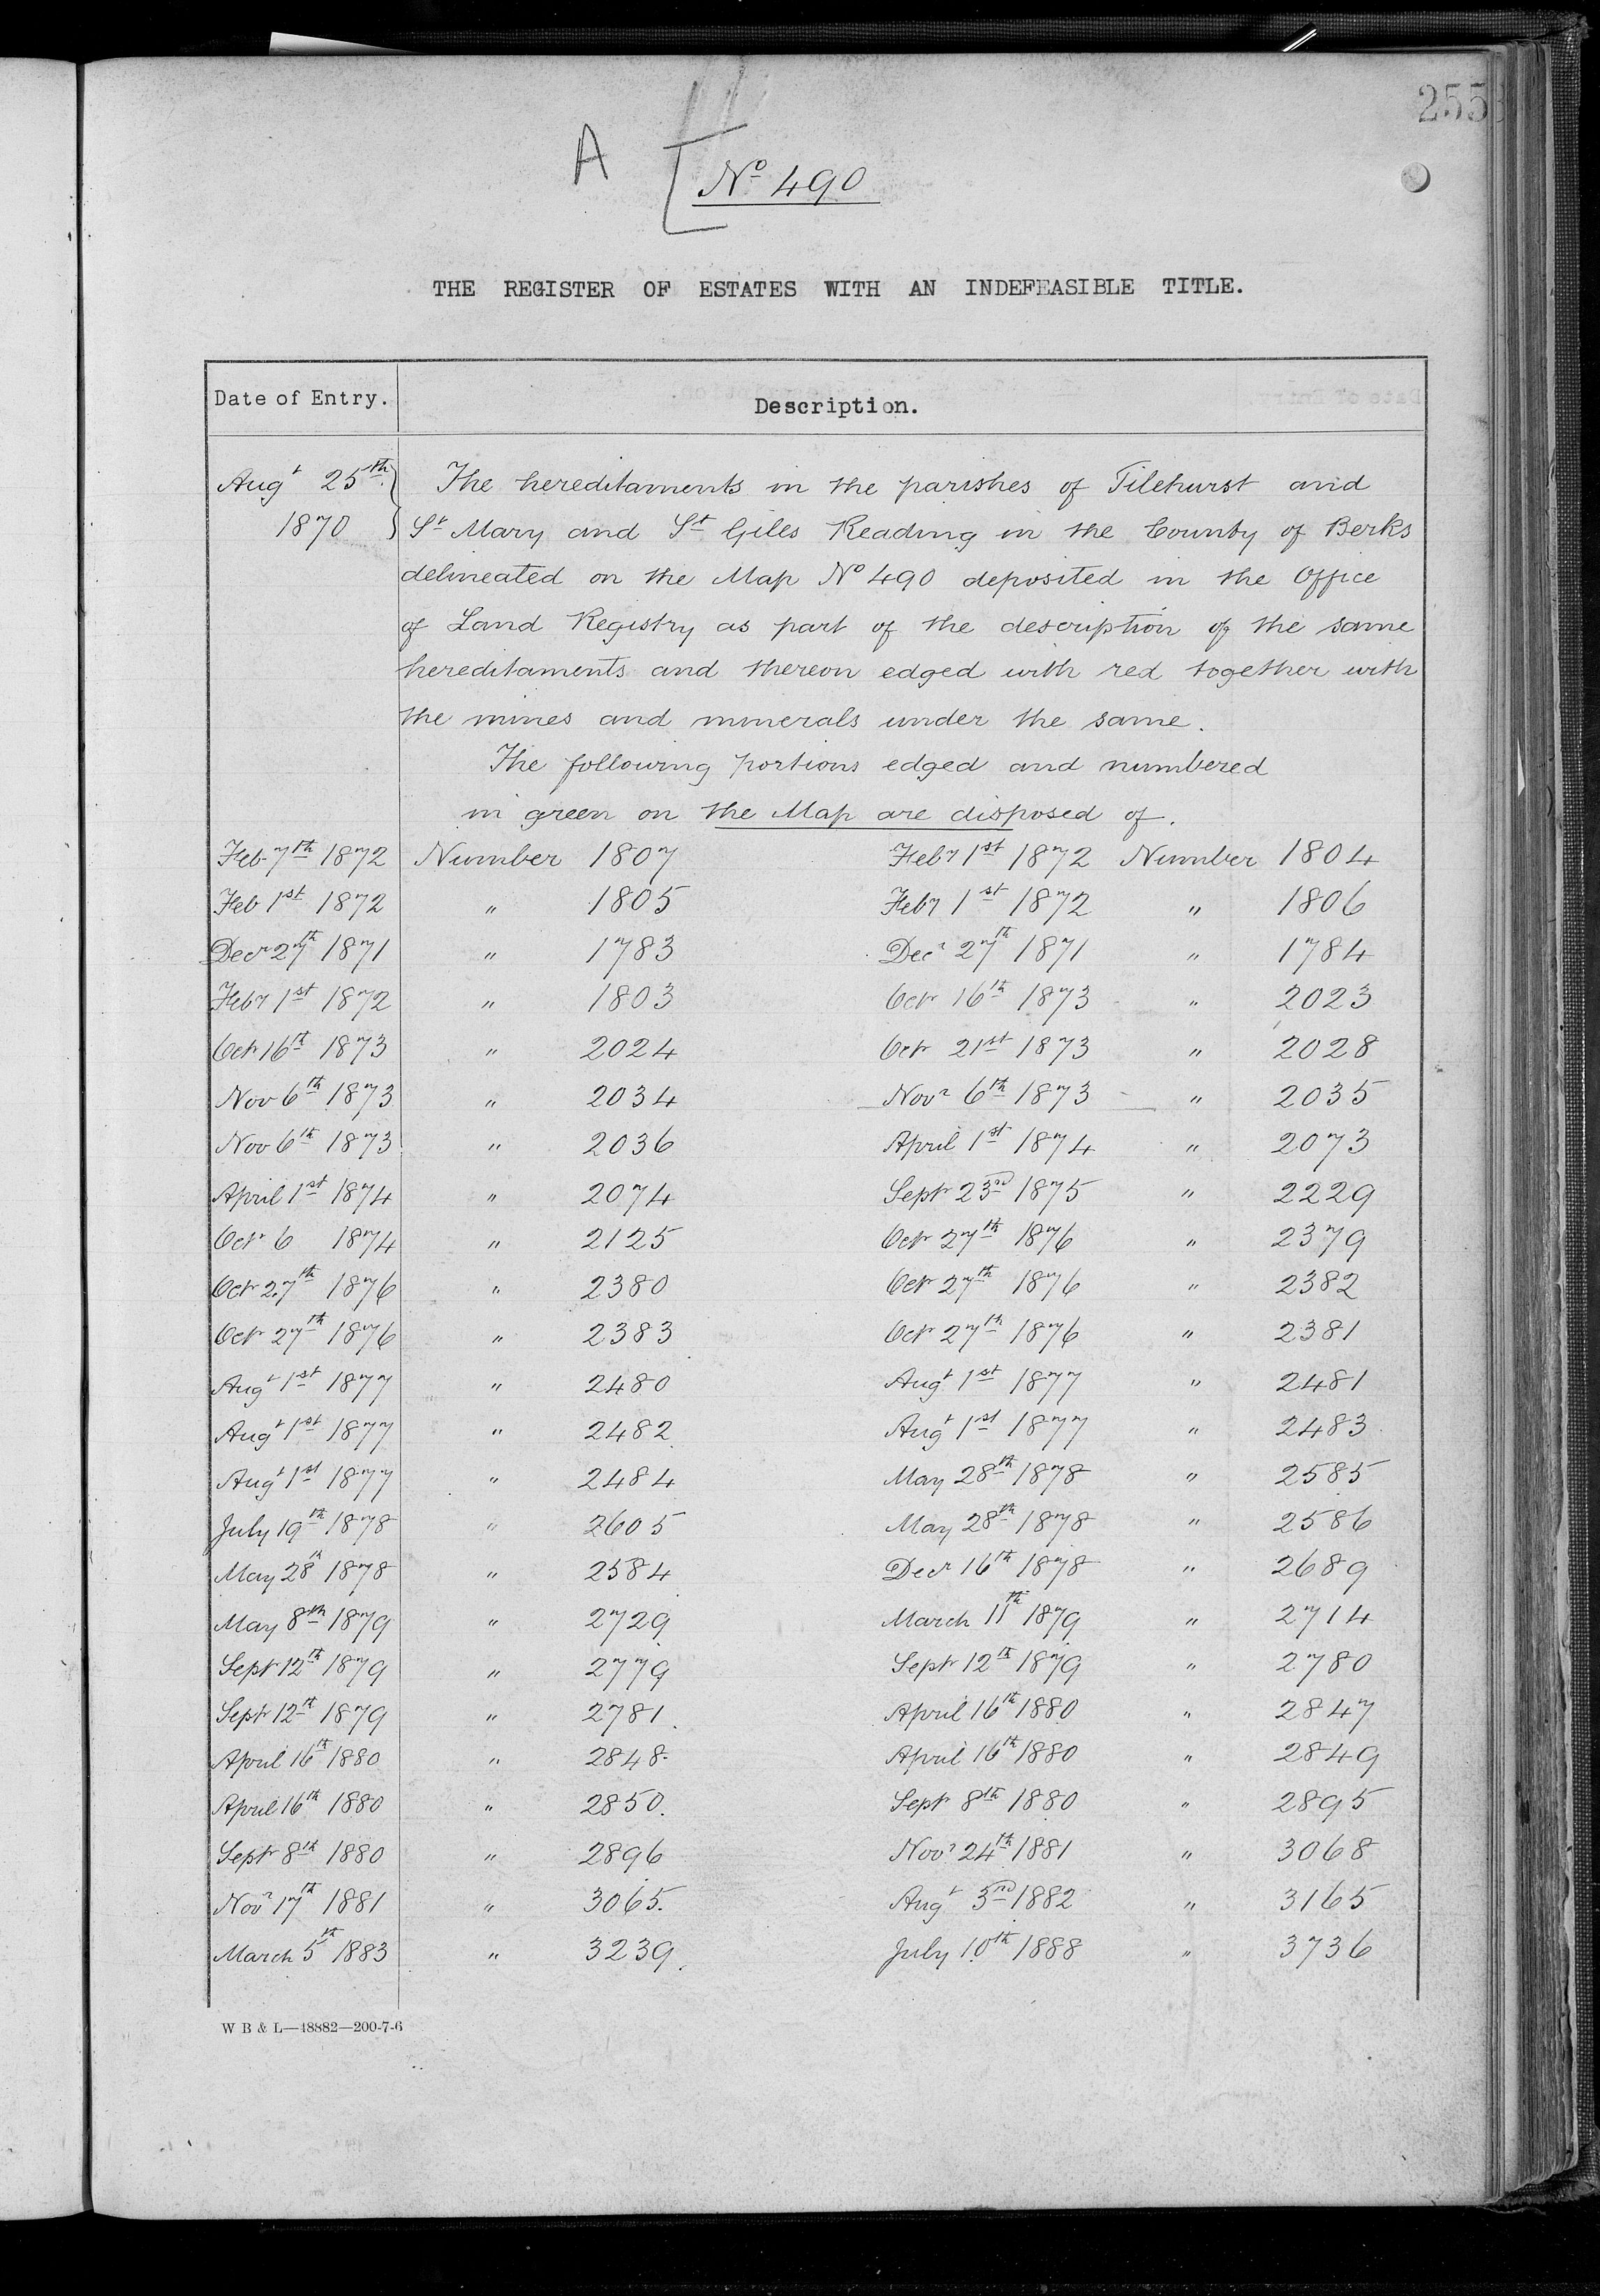 255
A
No 490
THE REGISTER OF ESTATES WITH AN INDEFEASIBLE TITLE.
Date of Entry. Description.
Augt 25th The hereditaments in the parishes of Tilehurst and
1870 St Mary and St Giles Reading in the County of Berks
delineated on the Map No 490 deposited in the Office
of Land Registry as part of the description of the same
hereditaments and thereon edged with red together with
the mines and minerals under the same.
The following portions edged and numbered
in green on the Map are disposed of.
Feb 7th 1872 Number 1807 Feby 1st 1872 Number 1804
Feb 1st 1872 " 1805 Feby 1st 1872 " 1806
Decr 27th 1871 " 1783 Decr 27th 1871 " 1784
Feby 1st 1872 " 1803 Octr 16th 1873 " 2023
Octr 16th 1873 " 2024 Octr 21st 1873 " 2028
Nov 6th 1873 " 2034 Novr 6th 1873 " 2035
Nov 6th 1873 " 2036 April 1st 1874 " 2073
April 1st 1874 " 2074 Septr 23rd 1875 " 2229
Octr 6 1874 " 2125 Octr 27th 1876 " 2379
Octr 27th 1876 " 2380 Octr 27th 1876 " 2382
Octr 27th 1876 " 2383 Octr 27th 1876 " 2381
Augt 1st 1877 " 2480 Augt 1st 1877 " 2481
Augt 1st 1877 " 2482 Augt 1st 1877 " 2483
Augt 1st 1877 " 2484 May 28th 1878 " 2585
July 19th 1878 " 2605 May 28th 1878 " 2586
May 28th 1878 " 2584 Decr 16th 1878 " 2689
May 8th 1879 " 2729 March 11th 1879 " 2714
Septr 12th 1879 " 2779 Septr 12th 1879 " 2780
Septr 12th 1879 " 2781 April 16th 1880 " 2847
April 16th 1880 " 2848 April 16th 1880 " 2849
April 16th 1880 " 2850. Septr 8th 1880 " 2895
Septr 8th 1880 " 2896 Novr 24th 1881 " 3068
Novr 17th 1881 " 3065. Augt 3rd 1882 " 3165
March 5th 1883 " 3239. July 10th 1888 " 3736
W B & L—48882—200-7-6